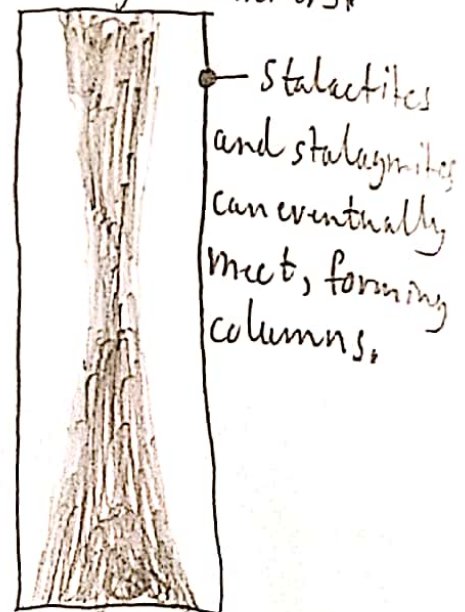 Stalactites
and stalagmites
can eventually
meet, forming
columns.